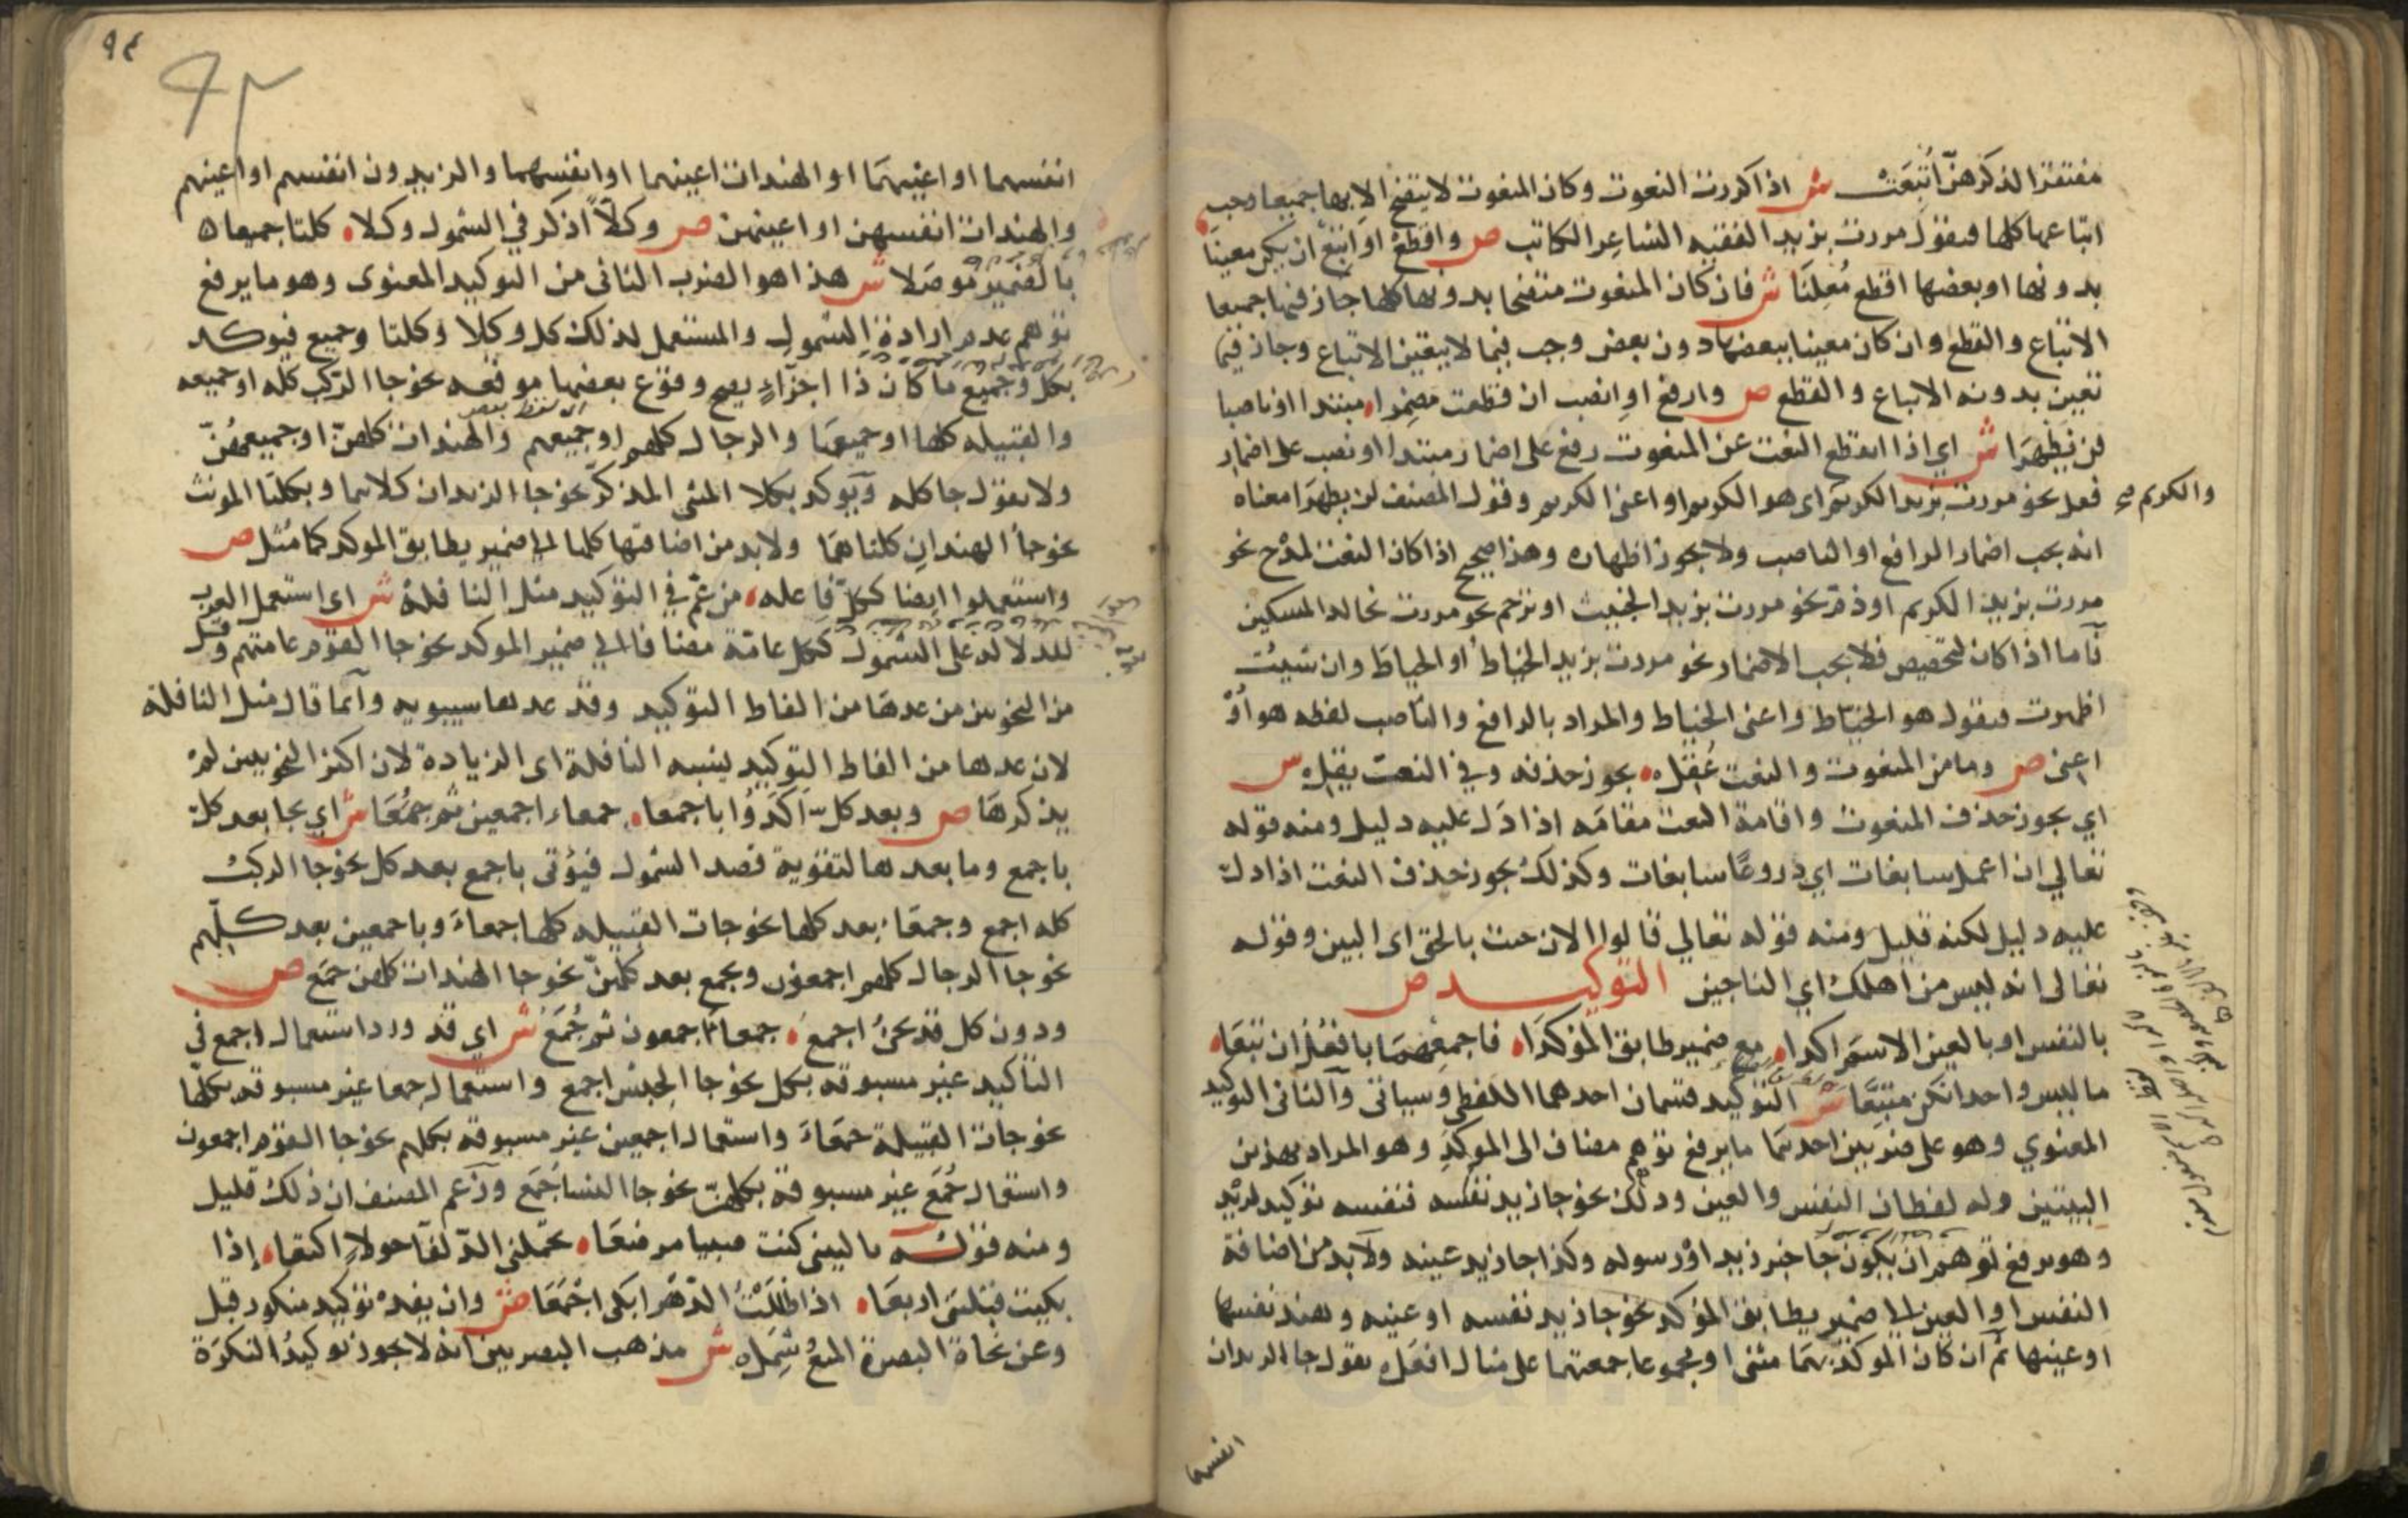 مفتقرا لذكرهن أتبعت ش اذا كررت النعوت وكان المنعوت لا يتضح الا بها جميعا وجب
اتباعها كلها فيقول مررت بزيد الفقيه الشاعر الكاتب ص واقطع او اتبع ان يكن معينا
بدونها او بعضها اقطع معلنا ش فان كان المنعوت متضحا بدونها كلها جاز فيها جميعا
الاتباع والقطع وان كان معينا ببعضها دون بعض وجب فيما لا يتعين الاتباع وجاز فيما
تعين بدونه الاتباع والقطع ص وارفع او انصب ان قطعت مضمرا مبتدا او ناصبا
لن يظهرا ش اي اذا انقطع النعت عن المنعوت رفع على اضمار مبتدا او نصب على اضمار
فعل نحو مررت بزيد الكريم اى هو الكريم او اعنى الكريم وقول المصنف لن يظهرا معناه
والكريم صح
انه يجب اضمار الرافع او الناصب ولا يجوز اظهاره وهذا صحيح اذا كان النعت لمدح نحو
مررت بزيد الكريم او ذم نحو مررت بزيد الخبيث او ترحم نحو مررت بخالد المسكين
فاما اذا كان لتخصيص فلا يجب الاضمار نحو مررت بزيد الخياط او الخياط وان شيئت
اظهرت فيقول هو الخياط واعنى الخياط والمراد بالرافع والناصب لفظه هو أو
اعنى ص وما من المنعوت والنعت عقل يجوز حذفه وفي النعت يقل ش
اي يجوز حذف المنعوت واقامة النعت مقامه اذا دل عليه دليل ومنه قوله
تعالي ان اعمل سابغات اي دروعا سابغات وكذلك يجوز حذف النعت اذا دل
عليه دليل لكنه قليل ومنه قوله تعالي قالوا الان جئت بالحق اى البين وقوله
تعالى انه ليس من اهلك اي الناجين التوكيد ص
بالنفس او بالعين الاسم اكدا مع ضمير طابق المؤكدا فاجمعهما بافعل ان تبعا
ما ليس واحدا تكن متبعا ش التوكيد قسمان احدهما اللفظي وسياتى والثانى التوكيد
المعنوي وهو على ضربين احدهما ما يرفع توهم مضاف الى الموكد وهو المراد بهذين
البيتين وله لفظان النفس والعين وذلك نحو جا زيد نفسه فنفسه توكيد لزيد
وهو يرفع توهم ان يكون جا خبر زيد او رسوله وكذا جا زيد عينه ولا بد من اضافة
النفس او العين الي ضمير يطابق المؤكد نحو جا زيد نفسه او عينه وهند نفسها
او عينها ثم ان كان الموكد بهما مثنى او مجموعا جمعتهما على مثال افعل يقول جا الزيدان
انفسهما
٩٤
انفسهما او اعينهما او الهندات اعينهما او انفسهما والزيدون انفسهم او اعينهم
والهندات انفسهن او اعينهن ص وكلا اذكر في الشمول وكلا كلتا جميعا
بالضمير موصلا ش هذا هو الضرب الثانى من التوكيد المعنوى وهو ما يرفع
توهم عدم ارادة الشمول والمستعمل لذلك كل وكلا وكلتا وجميع فيوكد
بكل وجميع ما كان ذا اجزآء يصح وقوع بعضها موقعه نحو جا الركب كله او جميعه
والقبيله كلها او جميعها والرجال كلهم او جميعهم والهندات كلهن او جميعهن
ولا يقول جا كله ويوكد بكلا المثنى المذكر نحو جا الزيدان كلاهما وبكلتا المونث
نحو جا الهندان كلتاهما ولا بد من اضافتها كلها الي ضمير يطابق الموكد كما مثل ص
واستعملوا ايضا ككل فاعله من عم في التوكيد مثل النافلة ش اى استعمل العرب
للدلالة على الشمول ككل عامة مضافا الى ضمير الموكد نحو جا القوم عامتهم وقل
من النحويين من عدها من الفاظ التوكيد وقد عدها سيبويه وانما قال مثل النافلة
لان عدها من الفاظ التوكيد يشبه النافلة اى الزيادة لان اكثر النحويين لم
يذكرها ص وبعد كل اكدوا باجمعا جمعاء اجمعين ثم جمعا ش اي يجا بعد كل
باجمع وما بعدها لتقوية قصد الشمول فيؤتى باجمع بعد كل نحو جا الركب
كله اجمع وجمعاء بعد كلها نحو جات القبيله كلها جمعاء وباجمعين بعد كلهم
نحو جا الرجال كلهم اجمعون وبجمع بعد كلهن نحو جا الهندات كلهن جمع ص
ودون كل قد يجئ اجمع جمعاء اجمعون ثم جمع ش اي قد ورد استعمال اجمع في
التاكيد غير مسبوقه بكل نحو جا الجيش اجمع واستعمال جمعا غير مسبوقه بكلها
نحو جات القبيلة جمعاء واستعمال اجمعين غير مسبوقه بكلهم نحو جا القوم اجمعون
واستعمال جمع غير مسبوقة بكلهن نحو جا النسا جمع وزعم المصنف ان ذلك قليل
ومنه قوله يا ليتنى كنت صبيا مرضعا تحملني الذلفا حولا اكتعا إذا
بكيت قبلتنى اربعا اذا ظللت الدهر ابكى اجمعا ص وان يفد توكيد منكور قبل
وعن نحاة البصرة المنع شمل ش مذهب البصريين انه لا يجوز توكيد النكرة